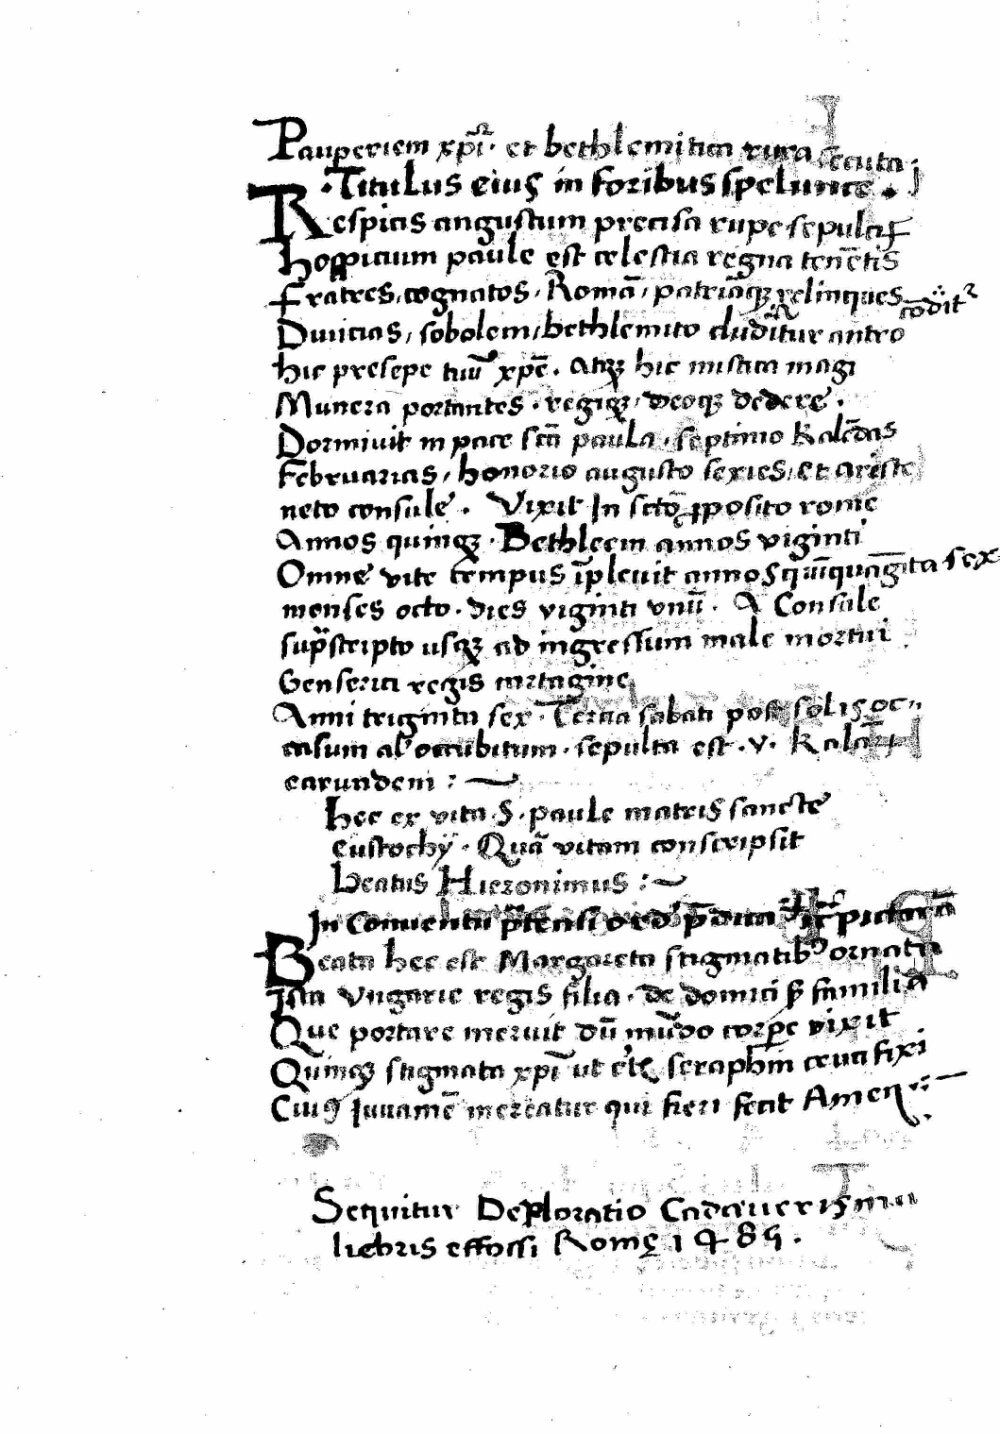 Pauperiem xp̄i · et bethlemitica rura secuta ·
· Titulus eius in foribus spelunce ·
Respicis angustum precisa rupe sepulcr̄
Hospicium paule est celestia regna tenētis
Fratres, cognatos, Romā, patriāqȝ relinques
Divicias, sobolem, bethlemito cludit~ur antro cōdit~
hic presepe tuū xp̄e . Atqȝ hic mistica magi
Munera portantes . regiqȝ, deoqȝ dedere .
Dormivit in pace sctā paula . septimo Kalēdas
Februarias, honorio augusto sexies, et ariste
neto consule . Vixit In sctō p̄posito rome
Annos quinqȝ . Bethleem annos viginti
Omne vite tempus īplevit annos quīquagīta sex
menses octo . dies viginti vnū . A Consule
sup̄scripto usqȝ ad ingressum male morturi
Genserici regis cartagine
Anni triginta sex . Tercia sabati post solis oc-
casum al' occubitum . sepulta est . v . Kalār
earundem :~
hec ex vita . S . paule matris sancte
Eustochÿ . Quā vitam conscripsit
beatus Hieronimus :~
In Conventu p̄tensi ord' p̄dicat~ ... picturā
Beata hec est Margareta stigmatib' ornata
Ista Vngarie regis filia . de domici p̄ familia
Que portare meruit dū mūdo corpe vixit
Quinqȝ stigmata xp̄i ut ... seraphin cruci fixi
Cui9 Juvamē mereatur qui fieri fecit Amen
Sequitur Deploratio Cadaveris mu
liebris effossi Romę 1485 .